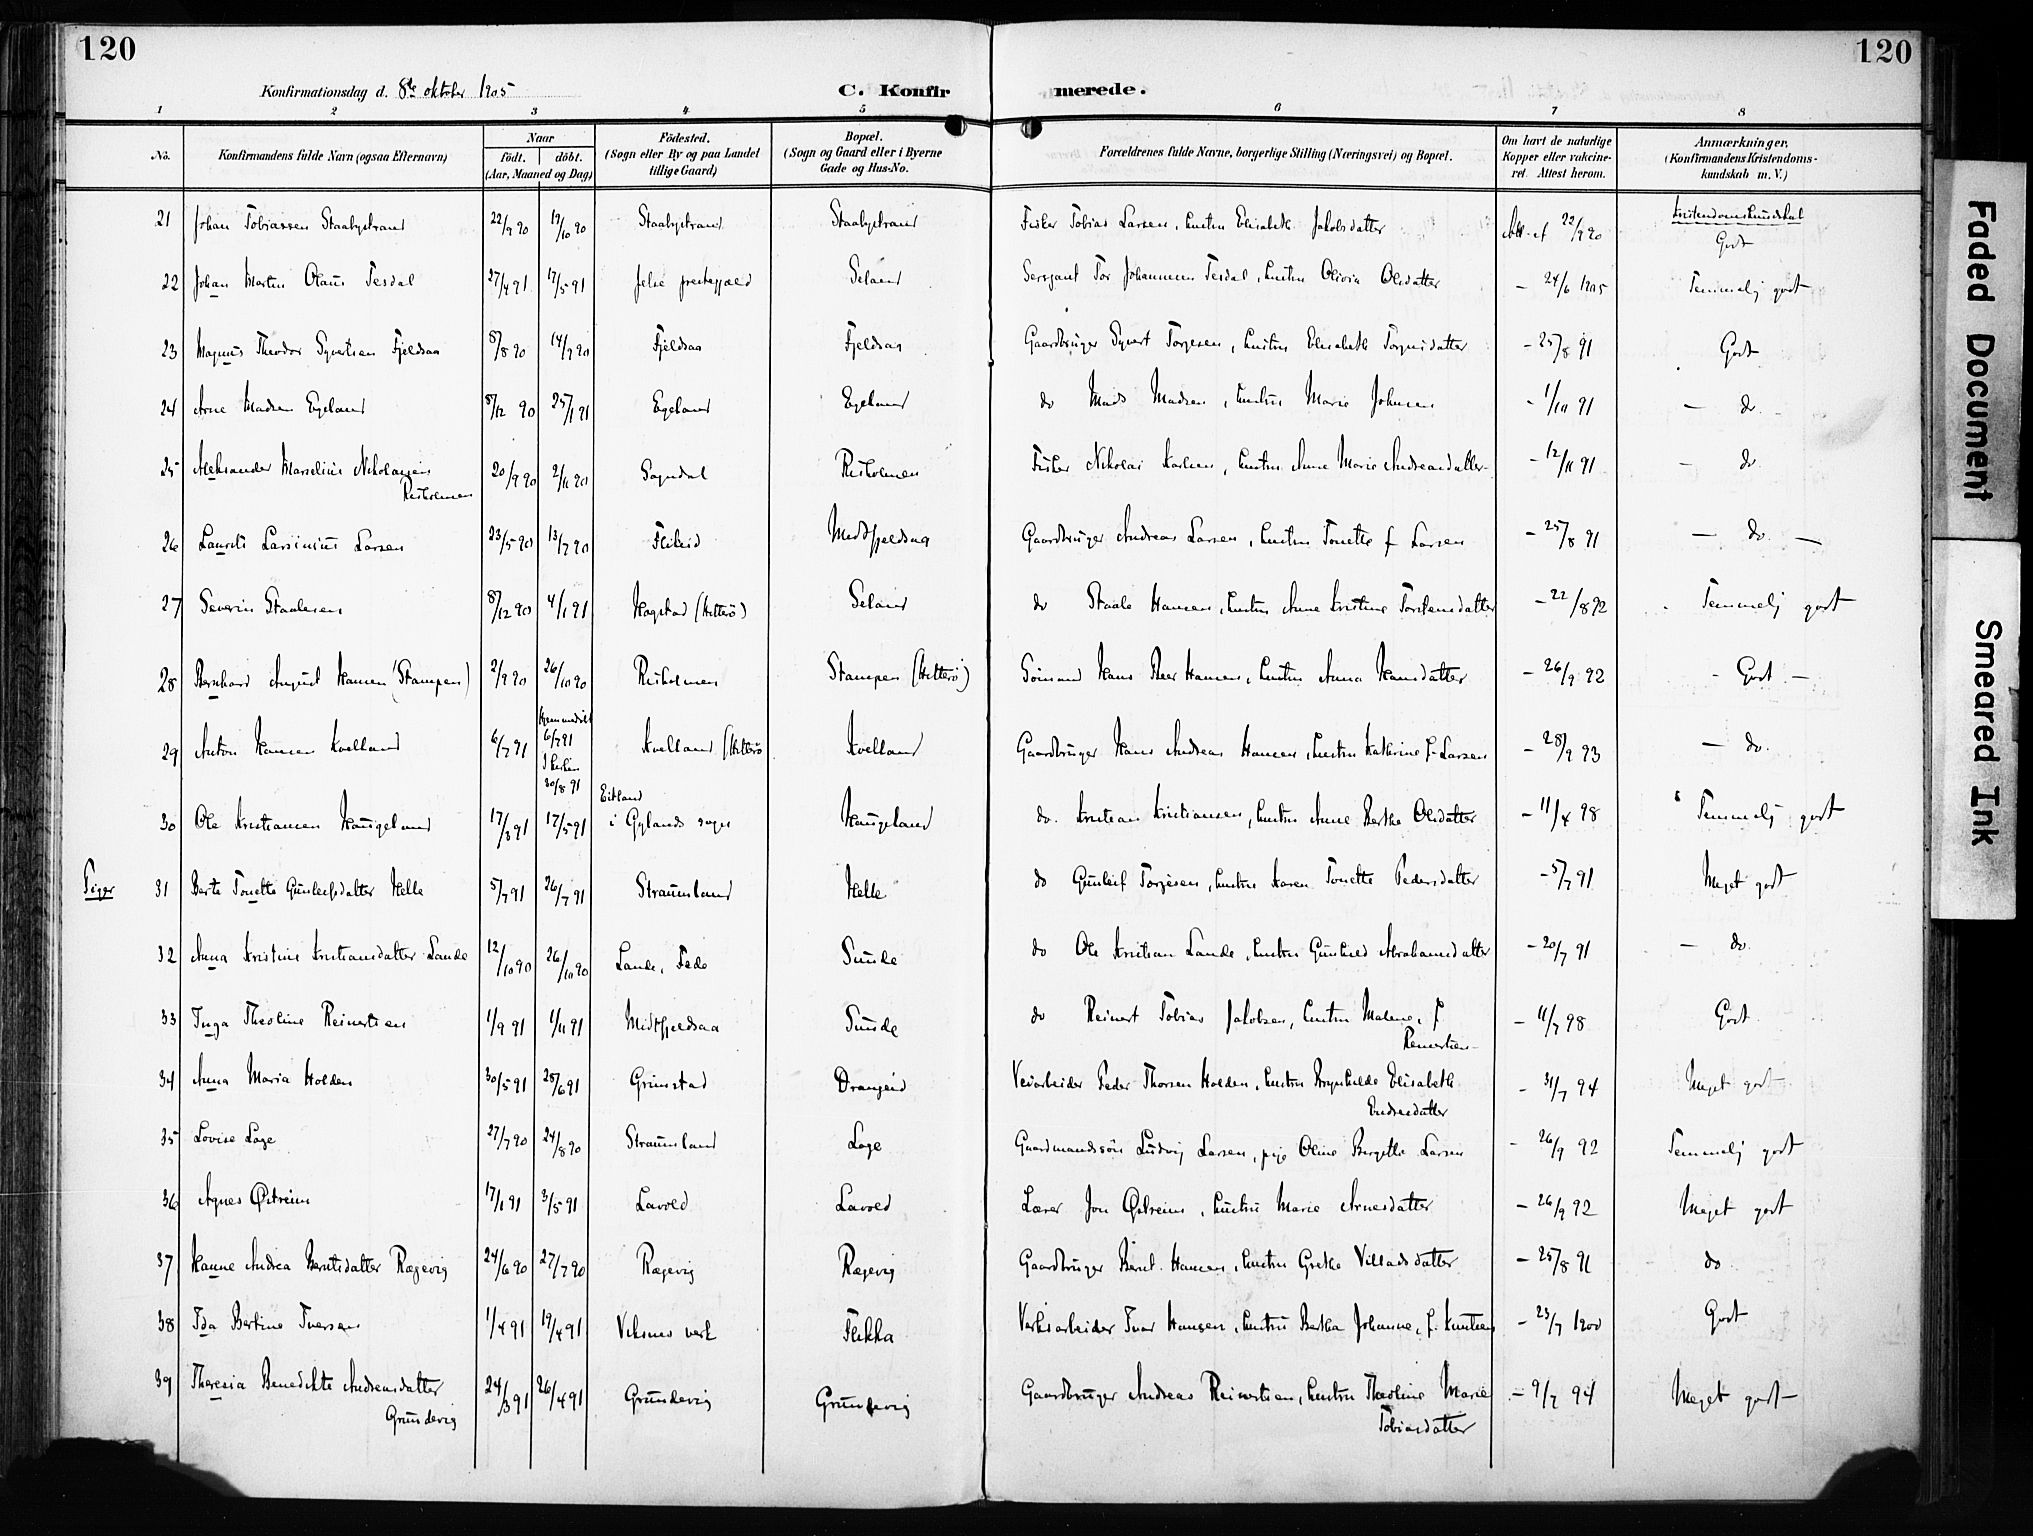 120
120
Konfirmationsdag d. 8de oktober 1905
C. Konfirmerede.
1 2 3 4 5 6 7 8
No.
Konfirmandens fulde Navn (ogsaa Efternavn)
Naar
født. døbt.
(Aar, Maaned og Dag)
Födested.
(Sogn eller By og paa Landet
tillige Gaard)
Bopæl.
(Sogn og Gaard eller i Byerne
Gade og Hus-No.
Forældrenes fulde Navne, borgerlige Stilling (Næringsvei) og Bopæl.
Om havt de naturlige
Kopper eller vakcine-
ret. Attest herom.
Anmærkninger,
(Konfirmandens Kristendoms-
kundskab m. V.)
Kristendomskundskab
21 Johan Tobiassen Staabystrand 22/9 90 19/10 90 Staabystrand Staabystrand Fisker Tobias Larsen, hustru Elisabeth Jakobsdatter Att. af 22/9 90 Godt
22 Johan Martin Olaus Tesdal 27/4 91 17/5 91 Jelse prestegjæld Seland Sersjant Tor Johannesen Tesdal, hustru Olivia Olsdatter – 24/6 1905 Temmelig godt
23 Magnus Theodor Syvertsen Fjeldsaa 8/8 90 14/9 90 Fjeldsaa Fjeldsaa Gaardbruger Syvert Torjesen, hustru Elisabeth Torjusdatter – 25/8 91 Godt
24 Arne Madsen Egeland 8/12 90 25/1 91 Egeland Egeland do Mads Madsen, hustru Marie Johnsen – 1/10 91 – do –
25 Aleksander Marselius Nikolaysen 20/9 90 2/11 90 Sogndal Risholmen Fisker Nikolai Karlsen, hustru Anne Marie Andreasdatter – 12/11 91 – do
Risholmen
26 Laurits Larsinius Larsen 23/5 90 13/7 90 Flikeid Midtfjeldsaa Gaardbruger Andreas Larsen, hustru Tonette f Larsen – 25/8 91 – do –
27 Severin Staalesen 8/12 90 4/1 91 Hagstad (Hitterö) Seland do Staale Hansen, hustru Anne Kristine Torstensdatter – 22/8 92 Temmelig godt
28 Bernhard August Hansen (Stampen) 2/9 90 26/10 90 Risholmen Stampen (Hitterö) Sömand Hans Peer Hansen, hustru Anna Hansdatter – 26/9 92 – Godt –
29 Anton Hansen Kvelland 6/7 91 Hjemmedöbt
6/7 91
I kirken
30/8 91 Kvelland (Hitterö Kvelland Gaardbruger Hans Andreas Hansen, hustru Kathrine f. Larsen – 28/9 93 – do.
Eitland
30 Ole Kristiansen Haugeland 17/3 91 17/5 91 i Gylands sogn Haugeland do. Kristian Kristiansen, hustru Anne Berthe Olsdatter – 11/4 98 Temmelig godt
Piger
31 Berte Tonette Gunleifsdatter Helle 5/7 91 26/7 91 Straumland Helle do Gunleif Torjesen, hustru Karen Tonette Pedersdatter – 5/7 91 Meget godt
32 Anna Kristine Kristiansdatter Lande 12/10 90 26/10 90 Lande, Fede Sunde do Ole Kristian Lande, hustru Gunhild Abrahamsdatter – 20/7 91 – do
33 Inga Theoline Reinertsen 1/9 91 1/11 91 Midtfjeldsaa Sunde do Reinert Tobias Jakobsen, hustru Malene, f – 11/7 98 Godt
Reinertsen –
34 Anna Maria Holden 30/5 91 28/6 91 Grimstad Drangeid Veiarbeider Peder Thorsen Holden, hustru Brynhilde Elisabeth – 31/7 94 Meget godt
Endresdatter
35 Lovise Loge 27/7 90 24/8 90 Straumland Loge Gaardmandssön Ludvig Larsen, pige Oline Bergette Larsen – 26/9 92 Temmelig godt
36 Agnes Østreim 17/1 91 3/5 91 Lavold Lavold Lærer Jon Østreim, hustru Marie Arnesdatter – 26/9 92 Meget godt
37 Hanne Andrea Berntsdatter Rægevig 24/6 90 27/7 90 Rægevig Rægevig Gaardbruger Bernt Hansen, hustru Grethe Villadsdatter – 25/8 91 do
38 Ida Bertine Iversen 1/4 91 19/4 91 Viksnes verk Flikka Verksarbeider Ivar Hansen, hustru Bertha Johanne, f. Knutsen – 23/7 1900 Godt
39 Theresia Benedikte Andreasdatter 24/3 91 26/4 91 Grundevig Grundevig Gaardbruger Andreas Reinertsen, hustru Theoline Marie – 9/7 94 Meget godt –
Grundevig
Tobiasdatter
Faded Document
Smeared Ink